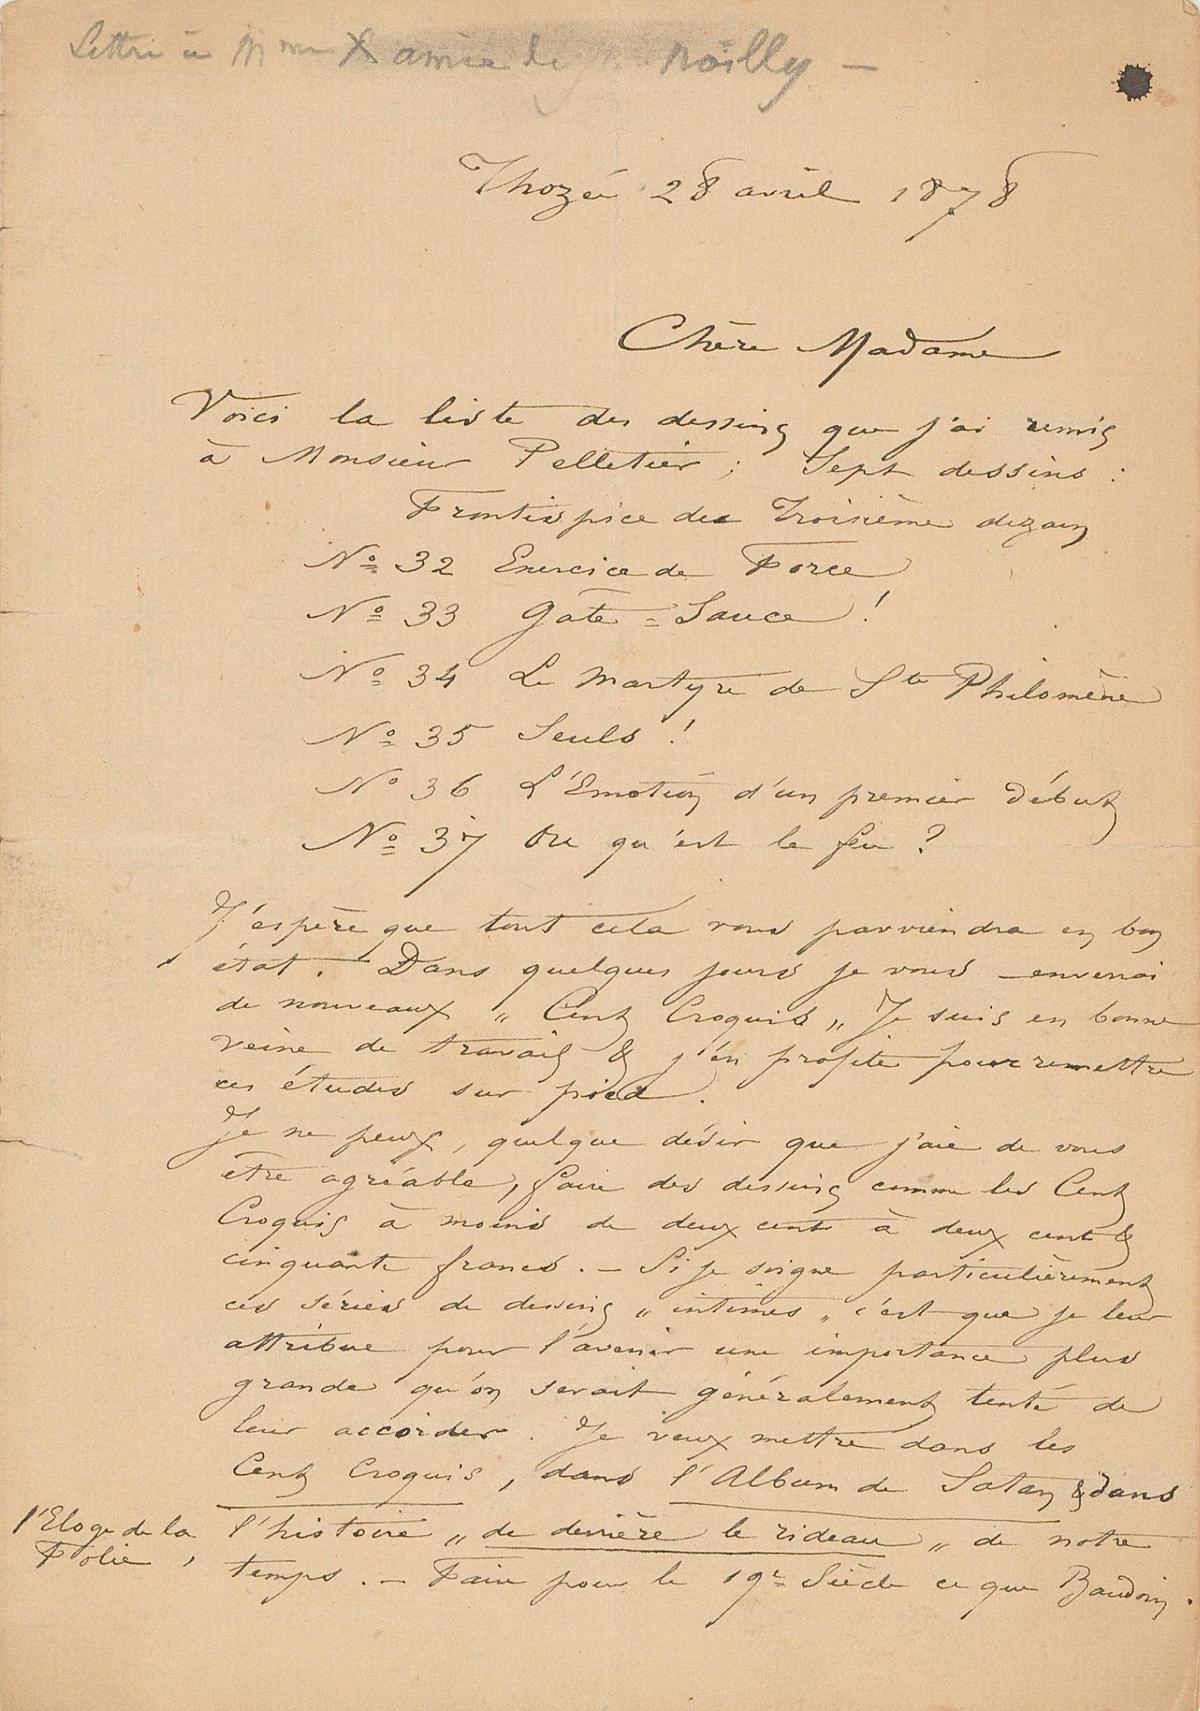 Lettre à Mme X amie de Noilly —
Thozée 28 avril 1878
Chère Madame
Voici la liste des dessins que j'ai remis
à Monsieur Pelletier ; Sept dessins :
Frontispice du Troisième dizain
No 32 Exercice de Force
No 33 Gâte = Sauce !
No 34 Le Martyre de Ste Philomène
No 35 Seuls !
No 36 L'Emotion d'un premier début
No 37 Ou qu'est le feu ?
J'espère que tout cela vous parviendra en bon
état. Dans quelques jours je vous enverrai
de nouveaux „ Cent Croquis „ Je suis en bonne
veine de travail & j'en profite pour remettre
ces études sur pied.
Je ne peux, quelque désir que j'aie de vous
être agréable, faire des dessins comme les Cent
Croquis à moins de deux cent à deux cent &
cinquante francs. – Si je soigne particulièrement
ces séries de dessins „ intimes „ c'est que je leur
attribue pour l'avenir une importance plus
grande qu'on serait généralement tenté de
leur accorder. Je veux mettre dans les
Cent Croquis, dans l'Album de Satan & dans
l'Eloge de la
Folie,
l'histoire „ de derrière le rideau „ de notre
temps. – Faire pour le 19e Siècle ce que Baudoin.